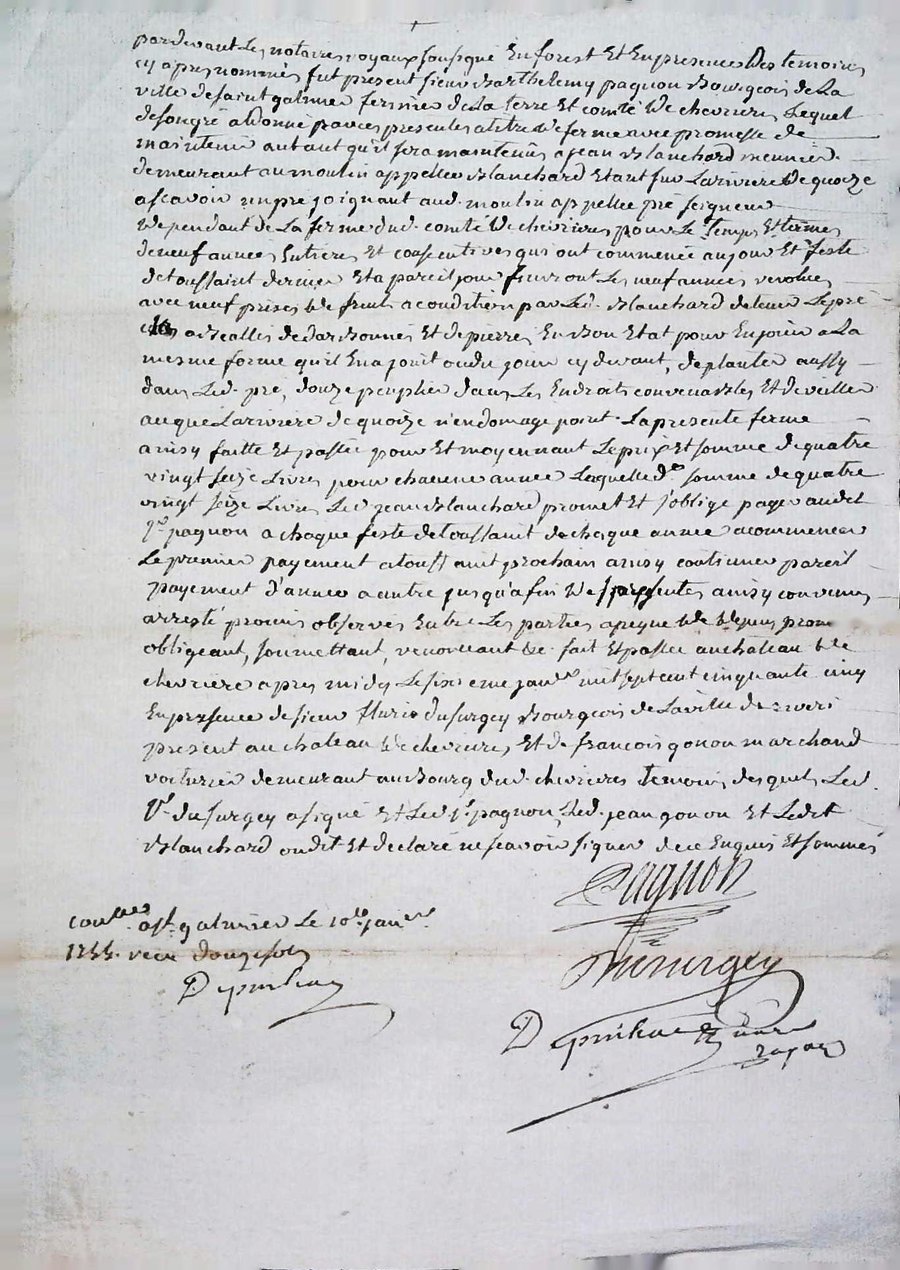 pardevant les notaires royaux soussigné en forest et en presence des temoins
cy apres nommés fut present sieur Barthelemy pagnon Bourgeois de la
ville de saint galmier fermier de la terre et comté de chevrieres lequel
de son gré a donné par ces presentes a titre de ferme avec promesse de
maintenir autant qu'il sera maintenus a jean Blanchard meunier
demeurant au moulin appellée Blanchard etant sur la riviere de quoeze
ascavoir un pre joignant aud. moulin appellée pré seigneur
dependant de la ferme dud. comté de chevrieres pour le temps et termes
de neuf années entieres et consecutives qui ont commencé au jour et feste
de toussaint dernier et a pareil jour finiront les neuf années revolues
avec neuf prises de fruits a condition par led. Blanchard de tenir le pré
et de pierre en bon etat pour en jouir a la
mesme forme qu'il en a jouit ou du jouir cy devant, de planter aussy
dans led. pré, douze peuplier dans les endroits convenables et de veiller
a ce que la riviere de quoize n'endomage point. La presente ferme
ainsy faitte et passée pour et moyennant le prix et somme de quatre
vingt seize livres pour chacune année laquelle d. somme de quatre
vingt seize livres led. jean Blanchard promet et s'oblige payer audit
sr. pagnon a chaque feste de toussaint de chaque année a commencer
le premier payement a toussaint prochain ainsy continuer pareil
payement d'année a autre jusqu'a fin des presentes ainsy convenu
arresté promis observer entre les parties a peyne de depens prom
obligeant, soumettant, renonceant &c. fait et passée au chateau de
chevriere apres midy le sixieme janer. mil sept cent cinquante cinq
en presence de sieur fleurie dusurgey Bourgeois de la ville de riveri
present au chateau de chevrieres, et de francois gonon marchand
voiturier demeurant au Bourg dud. chevrieres temoins desquels led.
sr. dusurgey a signé et led. sr. pagnon, led. jean gonon et ledit
Blanchard on dit et declaré ne scavoir signer de ce enquis et sommés
Pagnon
Dusurgey
notre
royal
a st. galmier le 10e. janer.
1755. recu douze sols